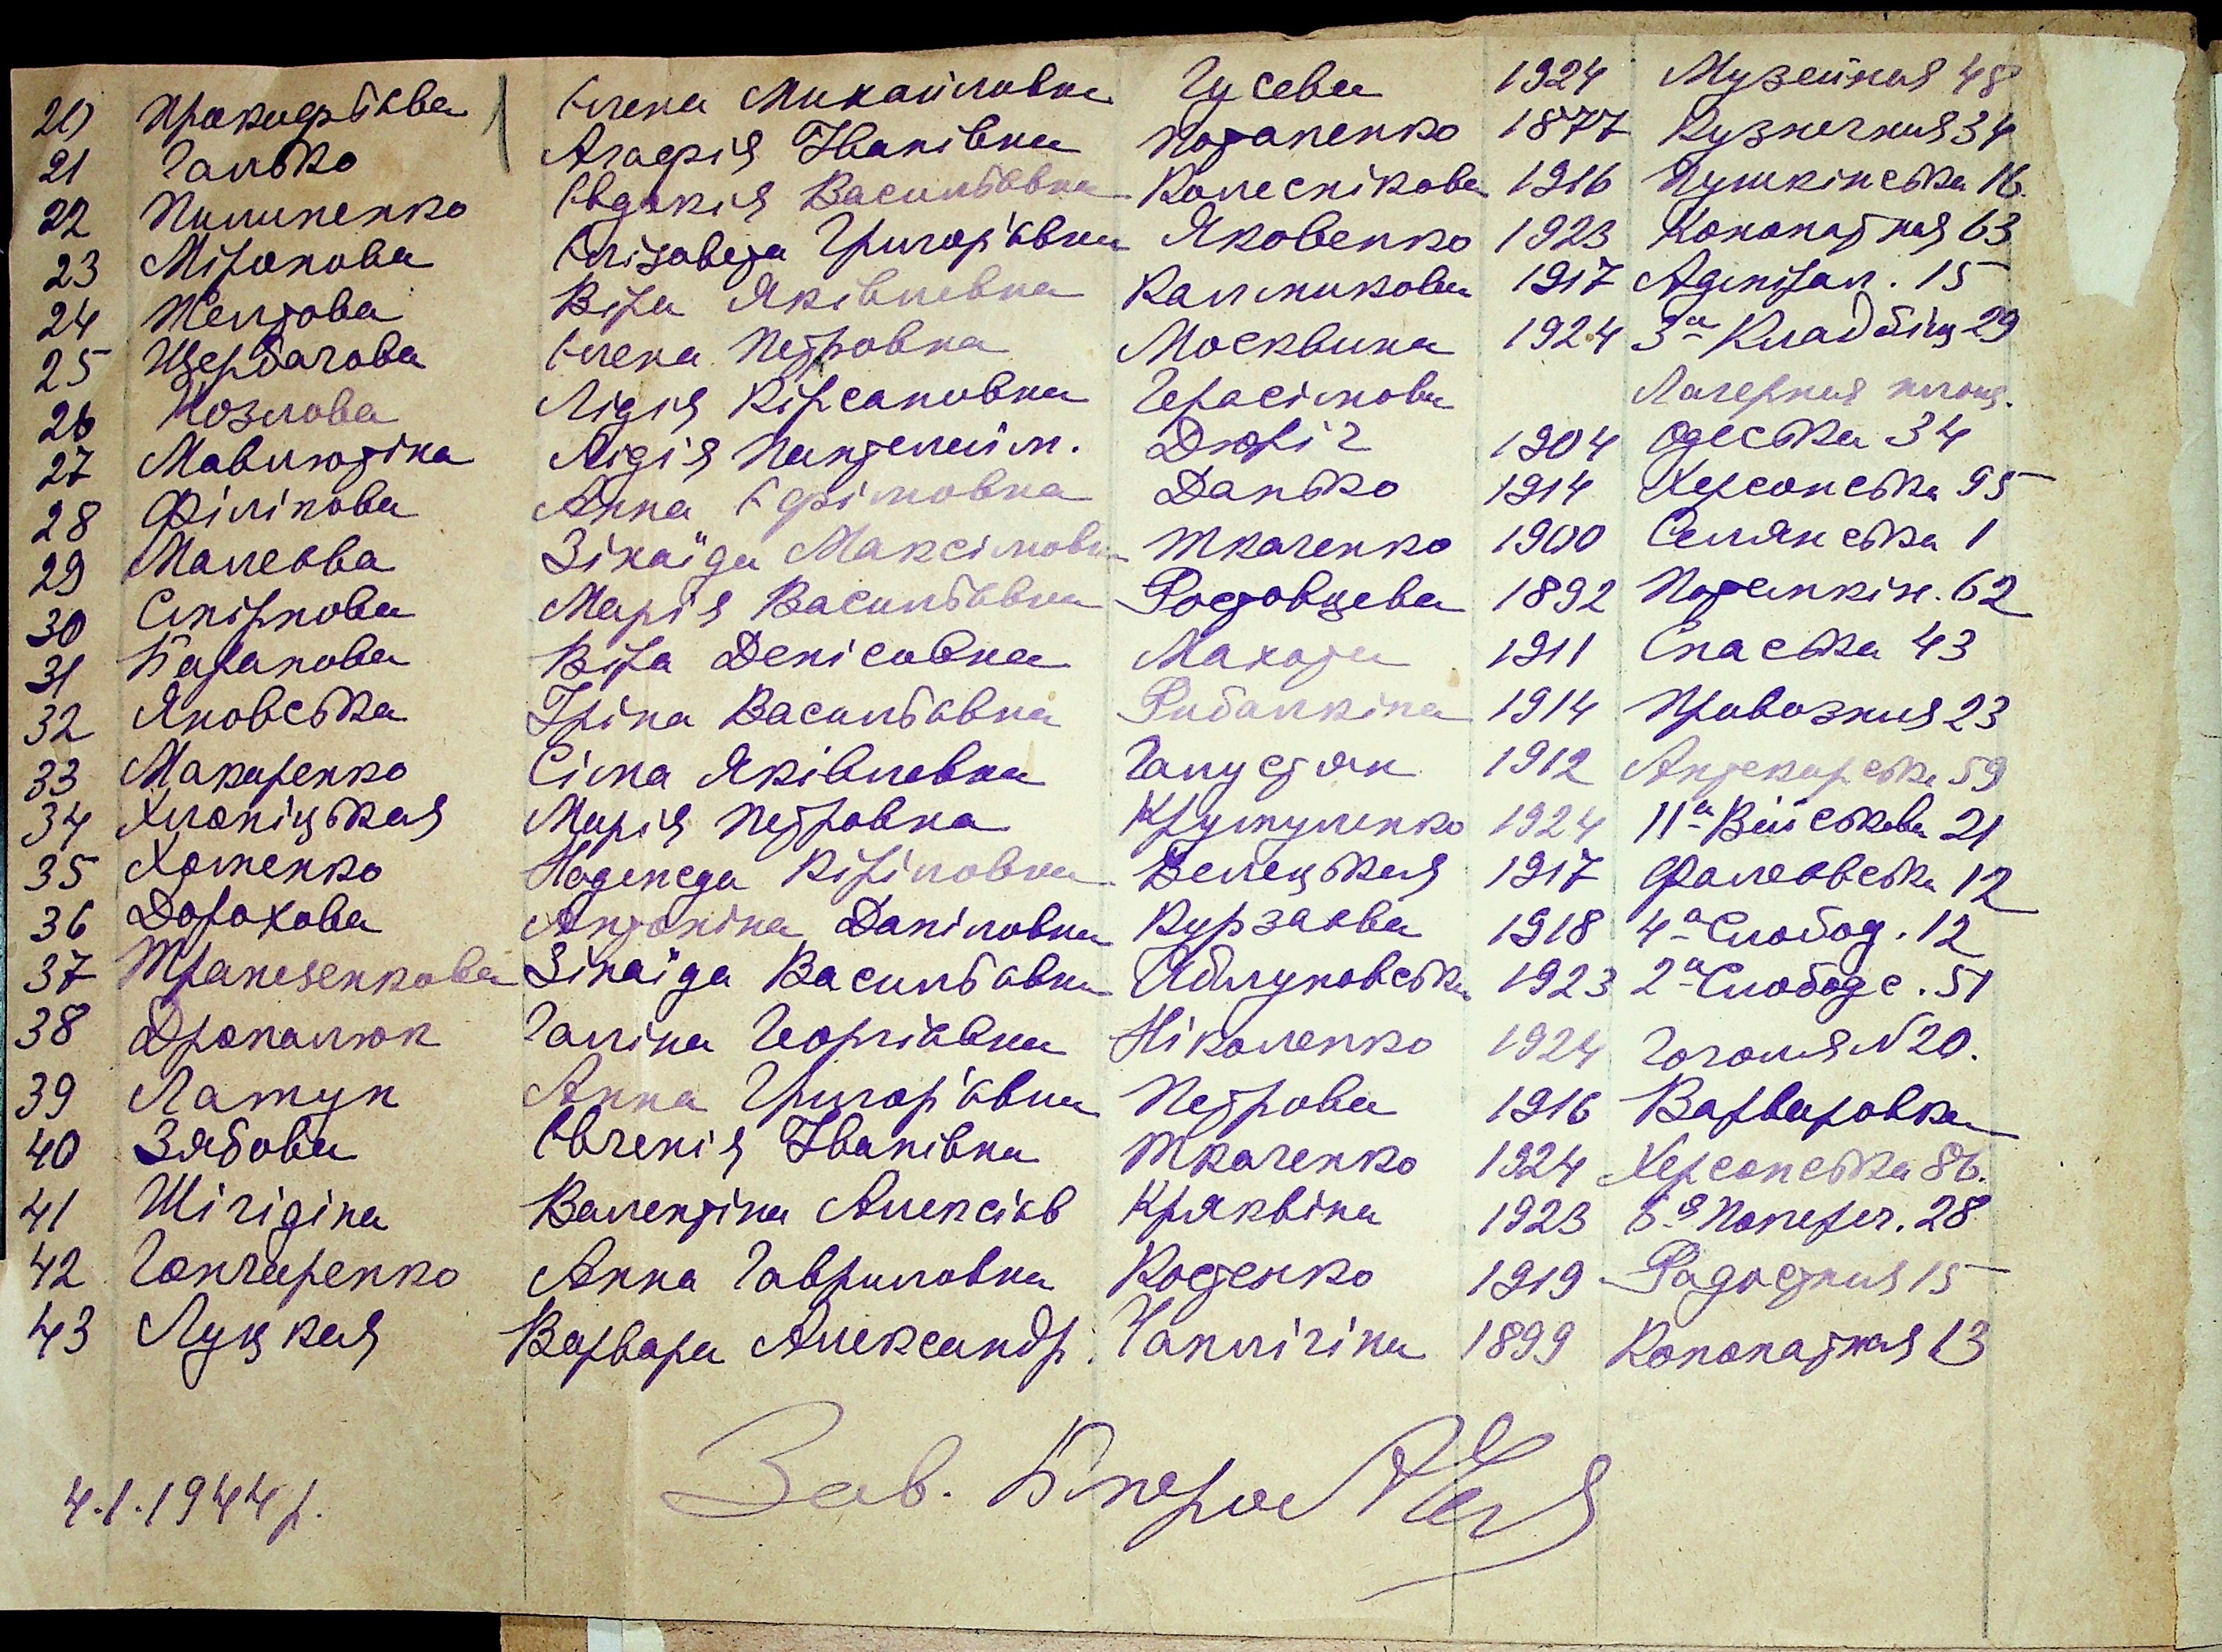 20 Прокоф'єва Єлена Михайловна Гусева 1924 Музейная 48
21 Галько Агафія Іванівна Потапенко 1877 Кузнечная 34
22 Пилипенко Євдокія Васильєвна Колеснікова 1916 Пушкінська 16.
23 Міронова Єлізавета Григор'євна Яковенко 1923 Конопатная 63
24 Желтова Віра Яківлевна Калмикова 1917 Адмірал. 15
25 Щербачова Єлена Петровна Москвина 1924 3а Кладбіщ 29
26 Козлова Лідія Кірсановна Герасімова Лагерная площ.
27 Мавлютіна Лідія Пантелейм. Дюріг 1904 Одеська 34
28 Філінова Анна Єфімовна Данько 1914 Херсонська 95
29 Малєєва Зінаїда Максімовна Ткаченко 1900 Селянська 1
30 Смірнова Марія Васильєвна Ростовцева 1892 Потемкін. 62
31 Баранова Віра Денісовна Махота 1911 Спаська 43
32 Яновська Іріна Васильєвна Рибалкіна 1914 Привозная 23
33 Макаренко Сіма Яківлевна Галустян 1912 Аптекарська 59
34 Хлопіцькая Марія Петровна Крутуленко 1924 11а Військова 21
35 Хоменко Надежда Кіріловна Белецькая 1917 Фалєєвська 12
36 Дорохова Антоніна Даніловна Курзаєва 1918 4а Слобод. 12
37 Трапезенкова Зінаїда Васильєвна Яблуновська 1923 2а Слободс. 51
38 Дропалюк Галіна Георгієвна Ніколенко 1924 Гоголя N 20.
39 Латун Анна Григор'євна Петрова 1916 Варваровка
40 Зябова Євгенія Іванівна Ткаченко 1924 Херсонська 86.
41 Шігідіна Валентіна Алексієв Кряквіна 1923 6я Попереч. 28
42 Гончаренко Анна Гавриловна Костенко 1919 Радостная 15
43 Луцкая Варвара Александр. Чаплігіна 1899 Конопатная 13
4.1.1944 р. Зав. Бюро